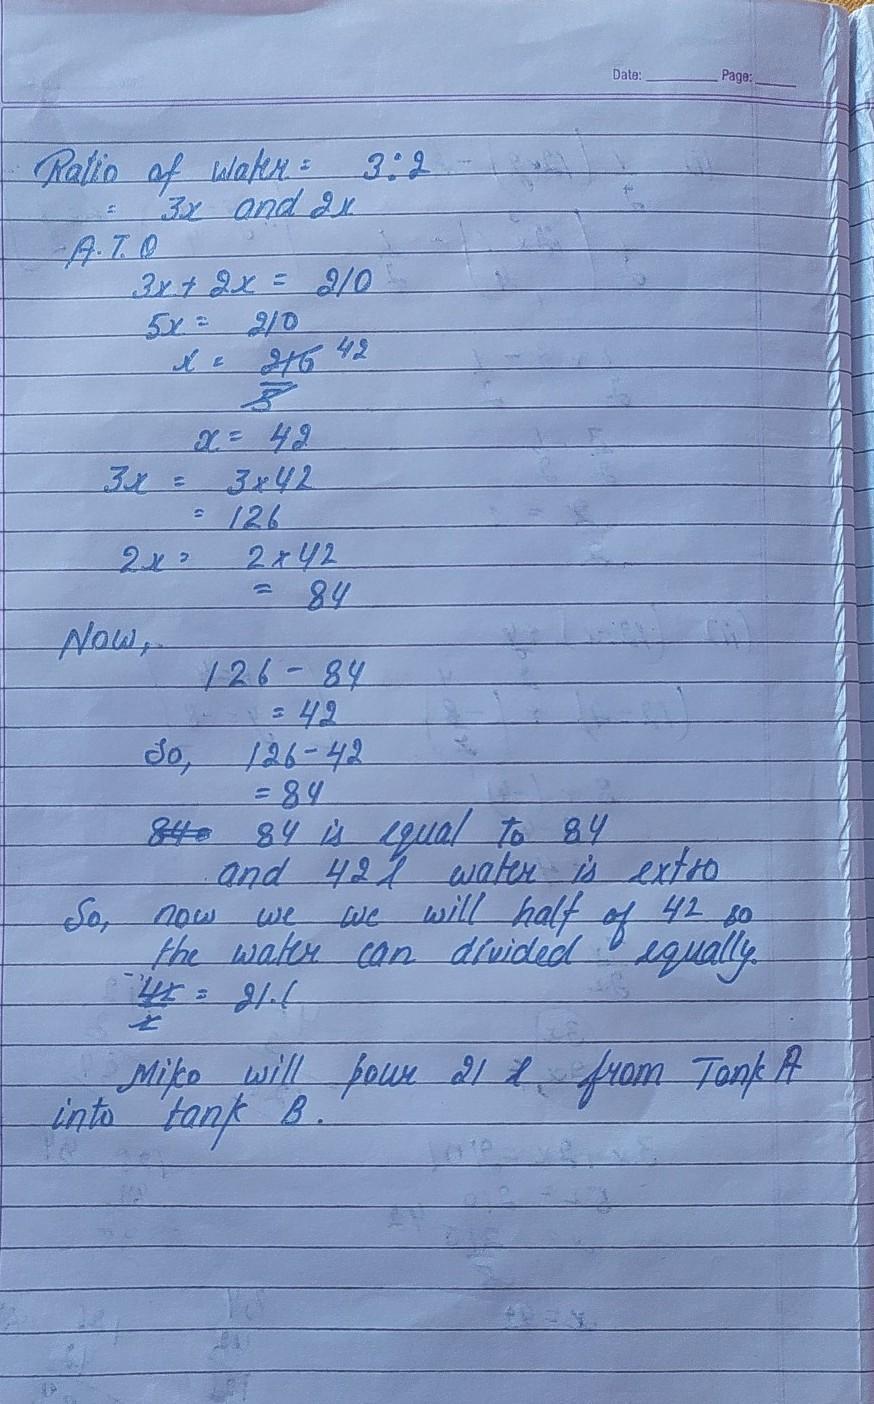 Date: Page:
Ratio of water = 3:2
= 3x and 2x
A.T.Q
3x + 2x = 210
5x = 210
x = 210 42
5
x = 42
3x = 3x42
= 126
2x = 2x42
= 84
Now,
126 - 84
= 42
So, 126-42
= 84
84 84 is equal to 84
and 42 l water is extra
So, now we we will half of 42 so
the water can divided equally.
42 = 21 l
2
Miko will pour 21 l from Tank A
into tank B.